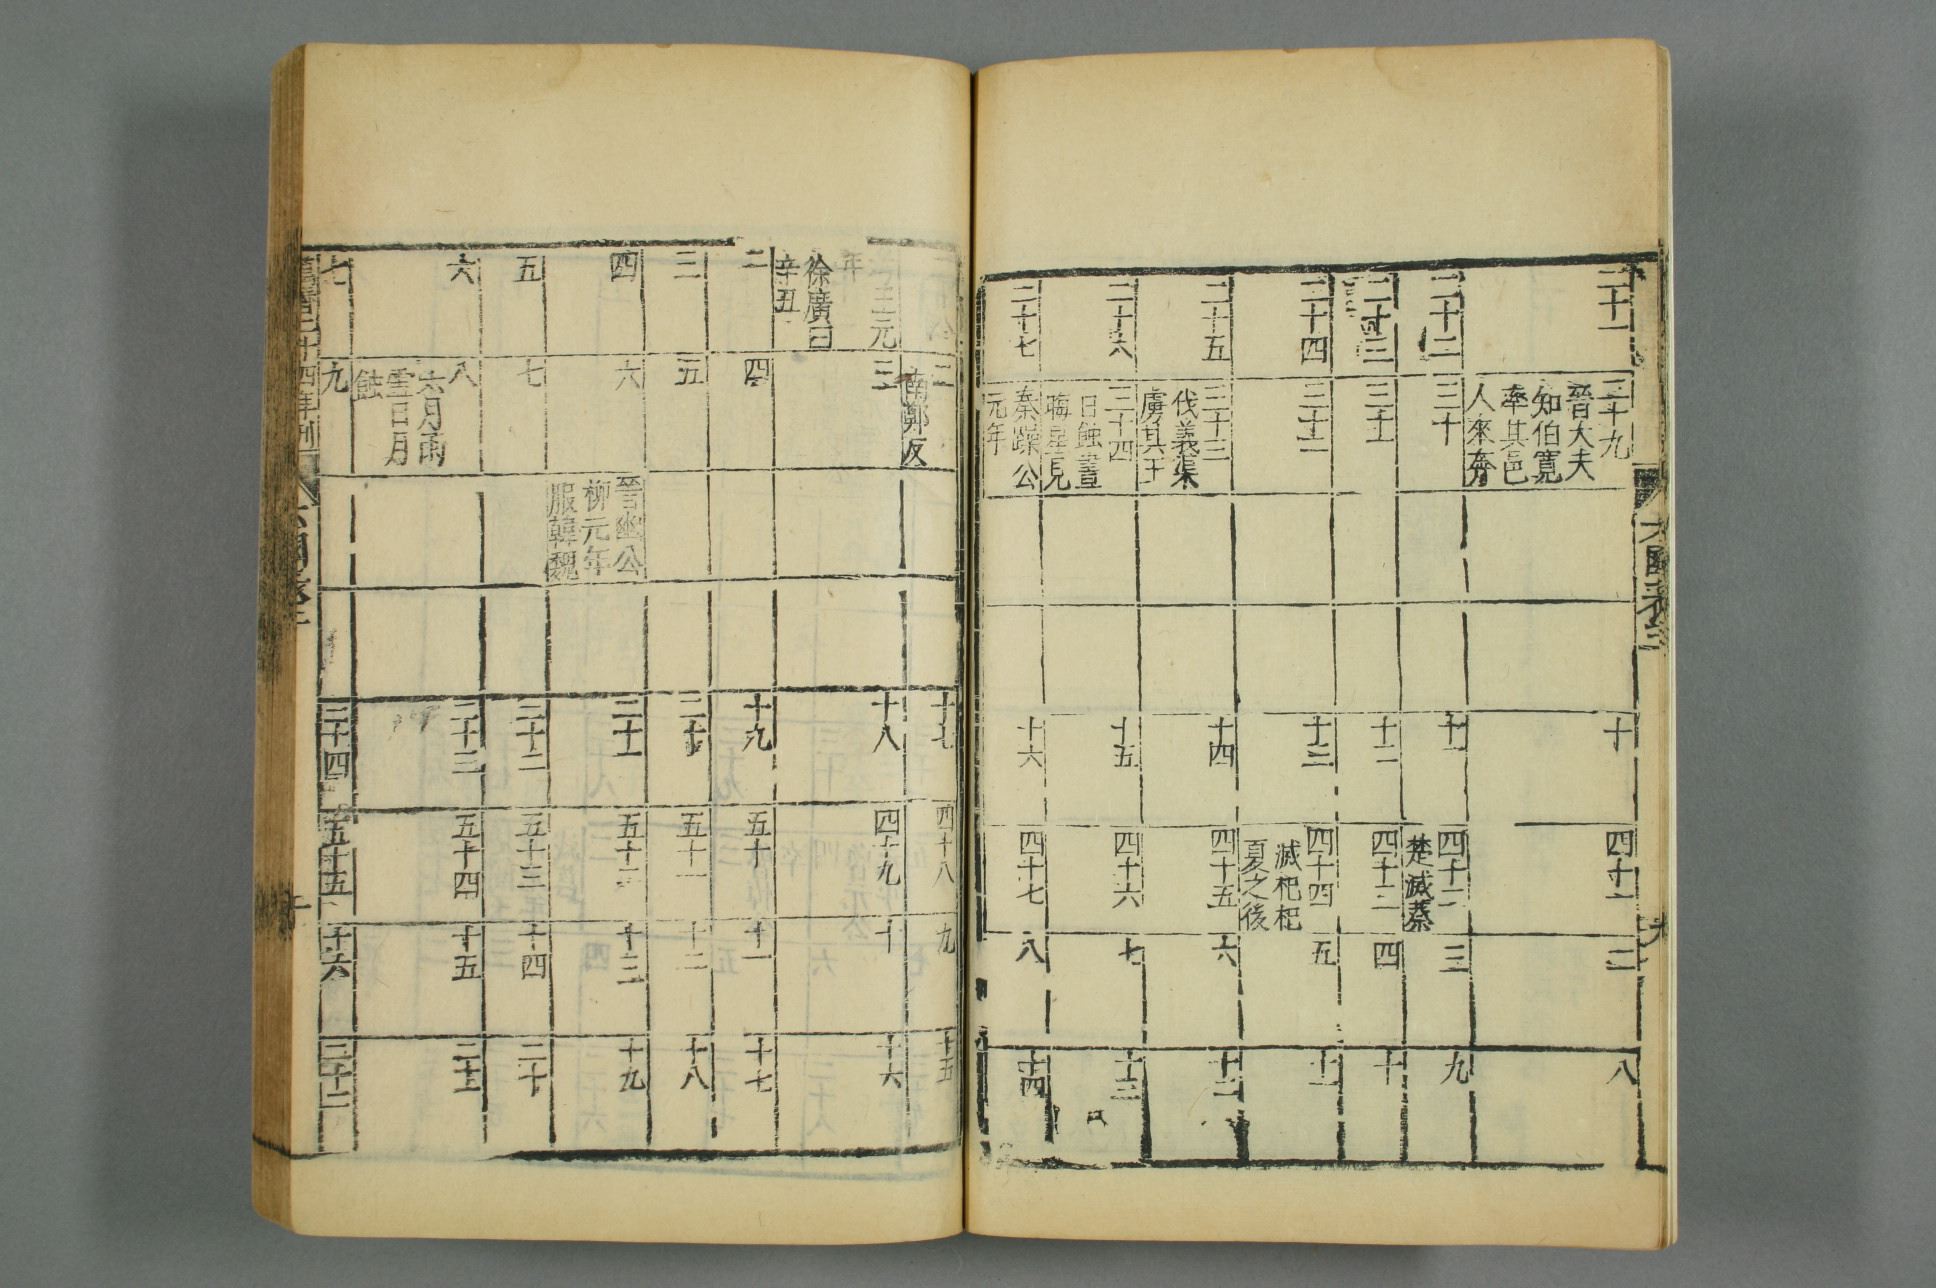 六國表三
九
二十一
二十九
晉大夫
知伯寬
率其邑
人來奔
十
四十一
二
八
二十二
三十
十一
四十二
楚滅蔡
三
九
二十三
三十一
十二
四十三
四
十
二十四
三十二
十三
四十四
滅杞杞
夏之後
五
十一
二十五
三十三
伐義渠
虜其王
十四
四十五
六
十二
二十六
三十四
日蝕晝
晦星見
十五
四十六
七
十三
二十七
秦躁公
元年
十六
四十七
八
十四
二
南鄭反
十七
四十八
九
十五
王元
年
徐廣曰
辛丑
三
十八
四十九
十
十六
二
四
十九
五十
十一
十七
三
五
二十
五十一
十二
十八
四
六
晉幽公
柳元年
服韓魏
二十一
五十二
十三
十九
五
七
二十二
五十三
十四
二十
六
八
六月雨
雪日月
蝕
二十三
五十四
十五
二十一
七
九
二十四
五十五
十六
二十二
二十四年刊
六國表三
十